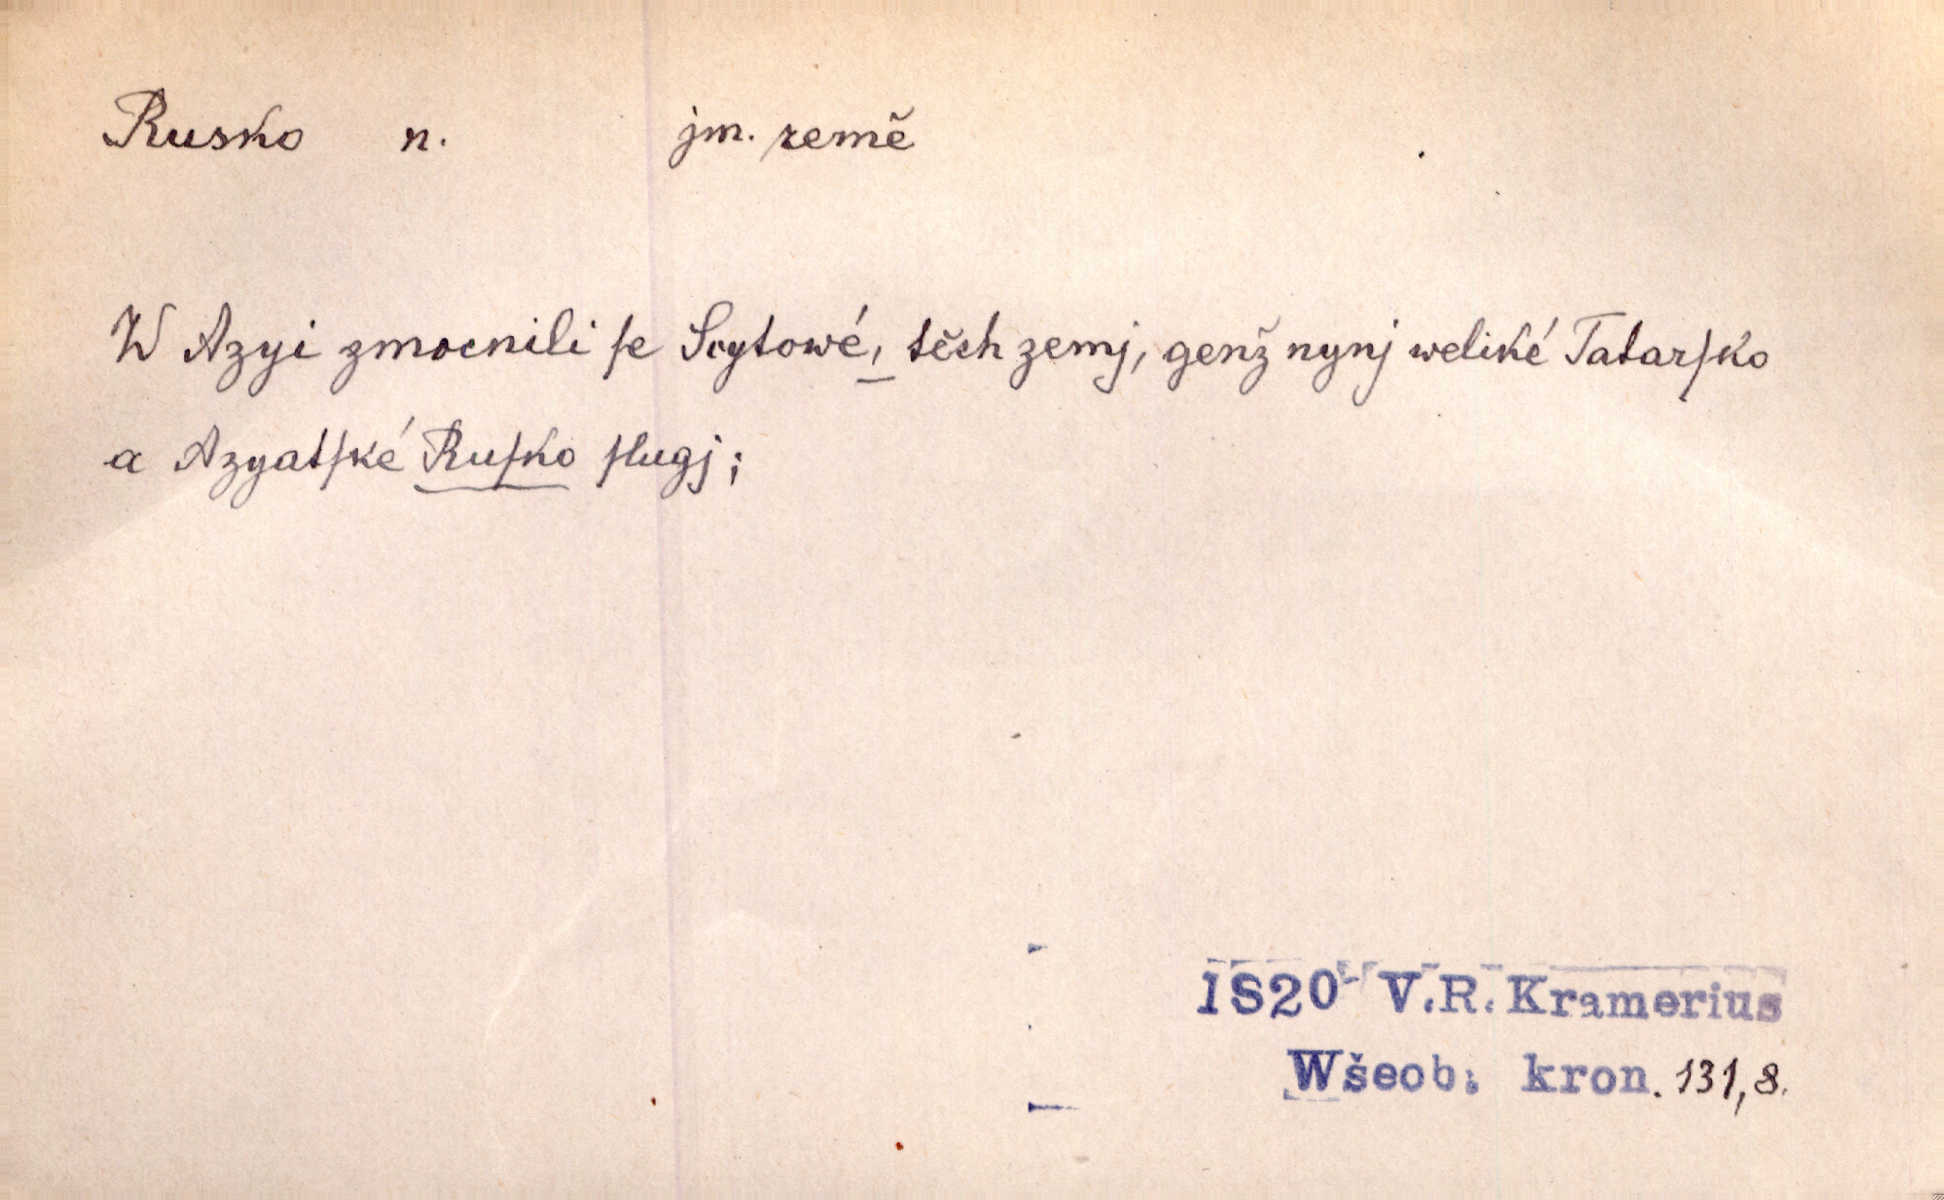 Rusko n. jm. země
W Azyi zmocnili ſe Scytowé, těch zemj, genž nynj weliké Tatarſko
a Azyatſké Ruſko ſlugj;
1820 V.R. Kramerius
Wšeob. kron. 131,8.